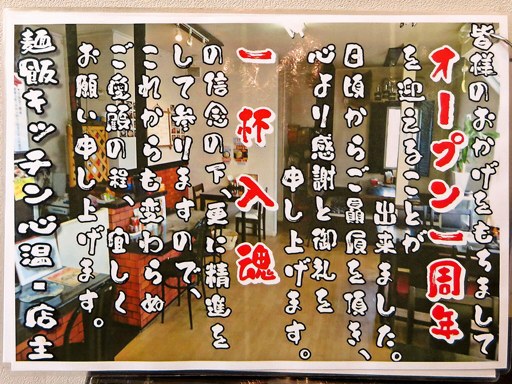 皆様のおかげをもちまして
オープン一周年
を迎えることが
出来ました。
日頃からご贔屓を頂き、
心より感謝と御礼を
申し上げます。
一杯入魂
の信念の下、更に精進を
して参りますので、
これからも変わらぬ
ご愛顧の程、宜しく
お願い申し上げます。
麺飯キッチン心温・店主